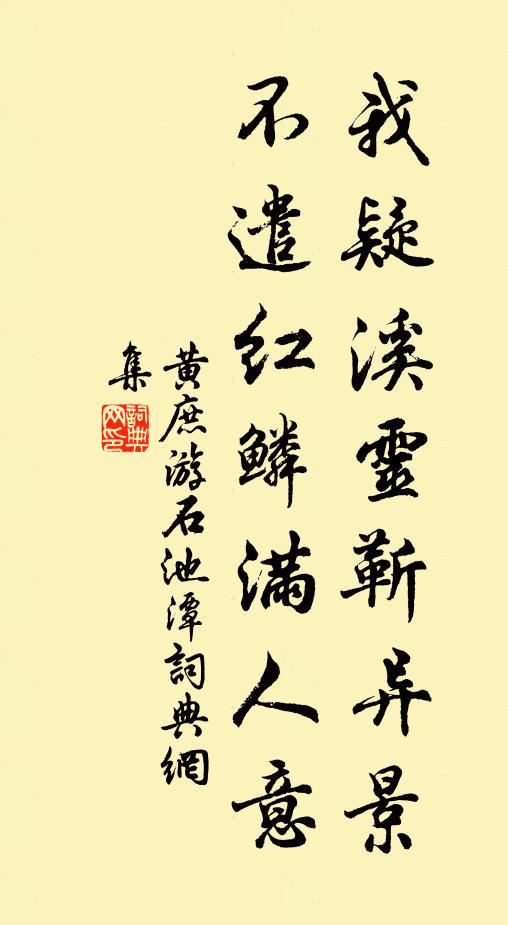 我疑溪靈靳异景
不遣红鱗满人意
黄庶游石池潭詞典網
集
詞典网印